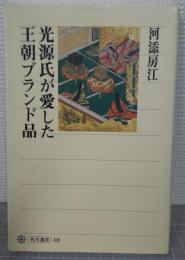 河添房江
光源氏が愛した
王朝ブランド品
角川選書
420